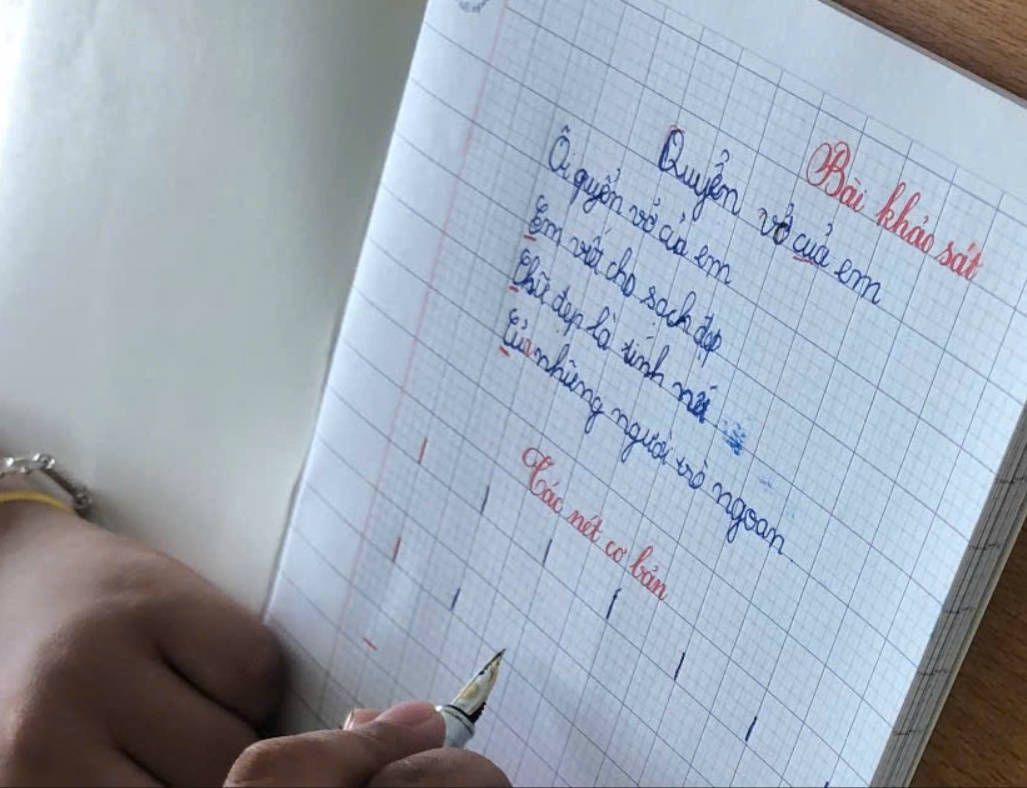 Bài khảo sát
Quyển vở của em
Ôi quyển vở của em
Em viết cho sạch đẹp
Chữ đẹp là tính nết
Của những người trò ngoan
Các nét cơ bản